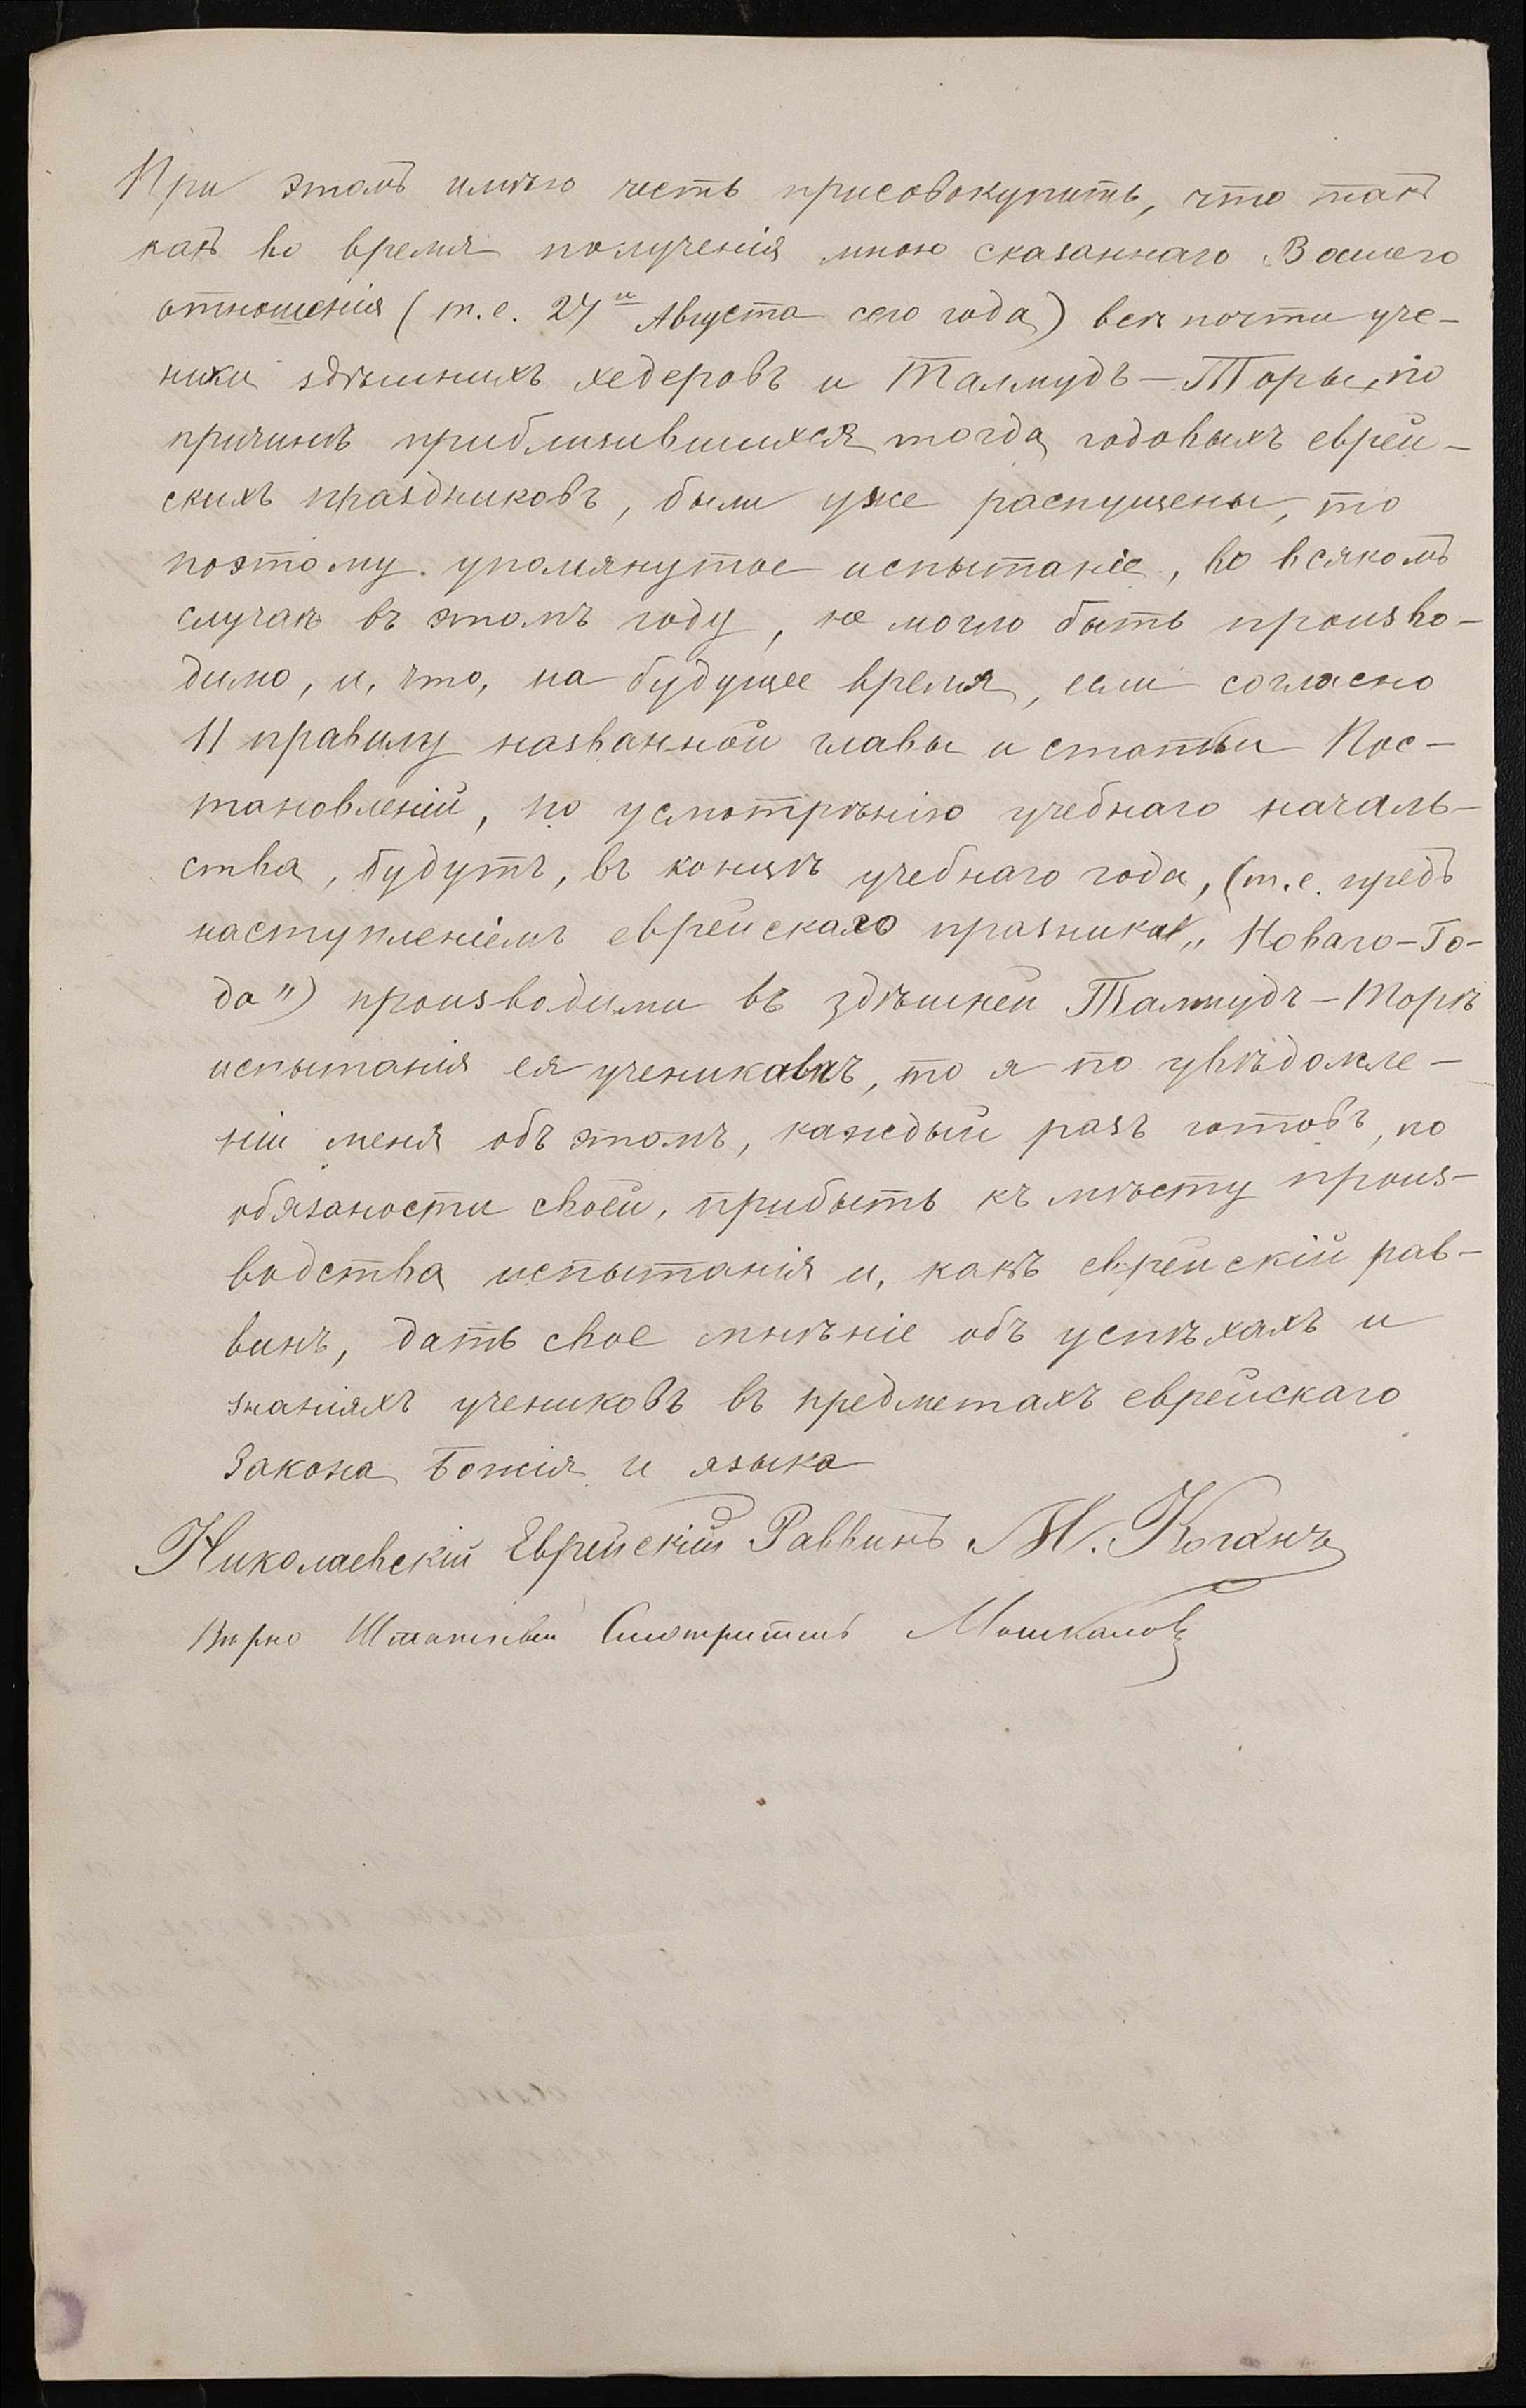 При этомъ имѣю честь присовокупить, что такъ
какъ во время полученія мною сказаннаго Вашего
отношенія (т.е. 27<sup>и</sup> Августа сего года) всѣ почти уче-
ники здѣшнихъ хедеровъ и Талмудъ-Торы, по
причинѣ приблизившихся тогда годовыхъ еврей-
скихъ праздниковъ, были уже распущены, то
поэтому упомянутое испытаніе, во всякомъ
случаѣ въ этомъ году, не могло быть произво-
димо, и, что, на будущее время, если согласно
11 правилу названной главы и статьи Пос-
тановленій, по усмотрѣнію учебнаго началь-
ства, будутъ, въ концѣ учебнаго года, (т.е. предъ
наступленіемъ еврейскаго празника „Новаго-Го-
да") производими въ здѣшней Талмудъ-Торѣ
испытанія ея ученикамъ, то я по увѣдомле-
ніи меня объ этомъ, каждый разъ готовъ, по
обязаности своей, прибыть къ мѣсту произ-
водства испытанія и, какъ еврейскій рав-
винъ, дать свое мнѣніе объ успѣхахъ и
знаніяхъ учениковъ въ предметахъ еврейскаго
Закона Божія и языка
Николаевскій Еврейскій Раввинъ М. Коганъ
Вѣрно Штатный Смотритель